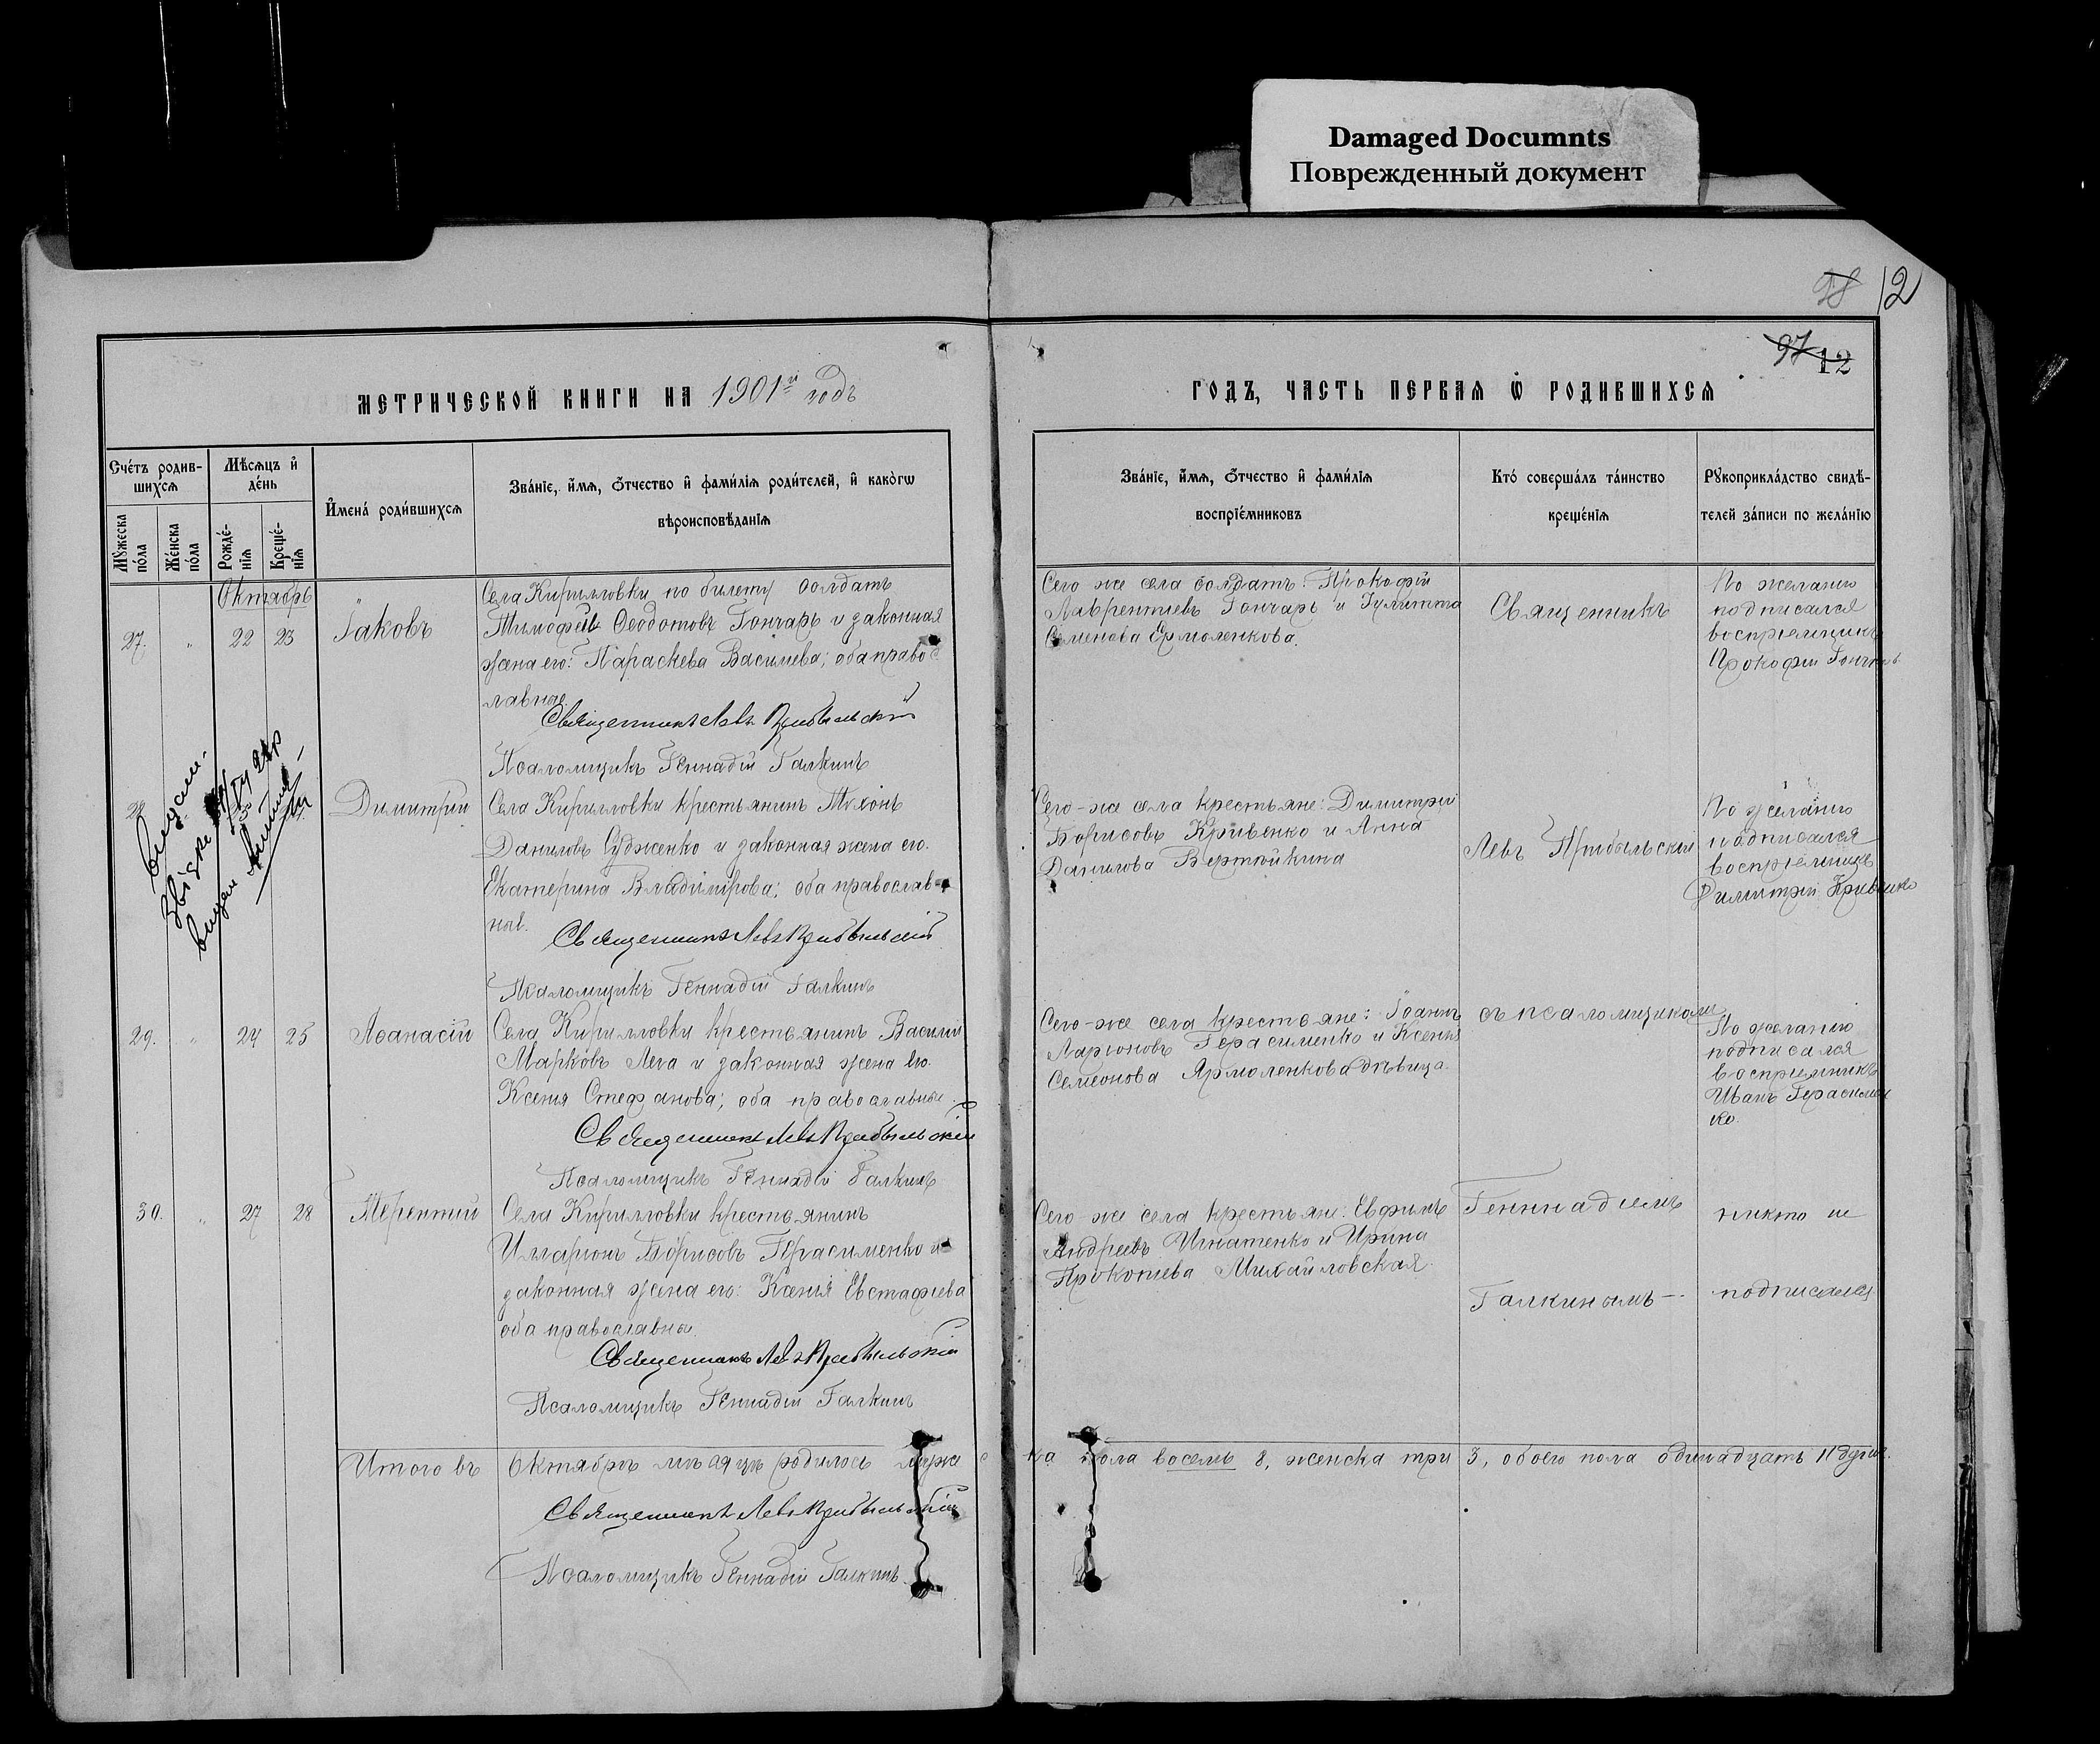 Damaged Documnts
Поврежденный документ
98 12
97 12
МЕТРИЧЕСКОЙ КНИГИ НА 1901й годъ
ГОДЪ, ЧАСТЬ ПЕРВАЯ Ѡ РОДИВШИХСЯ
Счéтъ родив-
шихсѧ
Мꙋжеска
пóла
Жéнска
пóла
Мѣсѧцъ и҆
дéнь
Рождé-
нїѧ
Крещé-
нїѧ
И҆менá роди́вшихсѧ
Звáнїе, и҆́мѧ, ѻ҆́тчество и҆ фами́лїѧ роди́телей, и҆ какóгѡ
вѣроисповѣ́данїѧ
Звáнїе, и҆́мѧ, ѻ҆́тчество и҆ фами́лїѧ
воспрїéмниковъ
Ктó совершáлъ тáинство
крещéнїѧ
Рꙋкоприклáдство свидѣ́-
телей зáписи по желáнїю
Октябрь
27. " 22 23
Іаковъ
Села Кирилловки по билету солдатъ
Тимофей Ѳеодотовъ Гончаръ и законная
жена его: Параскева Василиева; оба правос
лавные
Священникъ Левъ Прибыльскій
Псаломщикъ Геннадій Галкинъ
Сего же села солдатъ: Прокофій
Лаврентиевъ Гончаръ и Іулитта
Семенова Ермоленкова.
Священникъ
По желанію
подписался
воспріемникъ
Прокофій Гончаръ
28
Димитрій
Села Кирилловки крестьянинъ Тихонъ
Даниловъ Судженко и законная жена его.
Екатерина Владимірова; оба православ-
ные.
Священникъ Левъ Прибыльскій
Псаломщикъ Геннадій Галкинъ
Сего-же села крестьяне: Димитрій
Борисовъ Кривенко и Анна
Данилова Вертійкина
Левъ Прибыльскій
По желанію
подписался
воспріемникъ
Димитрій Кривенко
29. " 24 25
Аѳанасій
Села Кирилловки крестьянинъ Василій
Марковъ Лега и законная жена его.
Ксенія Стефанова; оба православные.
Священникъ Левъ Прибыльскій
Псаломщикъ Геннадій Галкинъ
Сего-же села крестьяне: Іоаннъ
Ларіоновъ Герасименко и Ксенія
Семеонова Ярмоленкова дѣвица.
съ псаломщикомъ
По желанію
подписался
воспріемникъ
Иванъ Герасимен
ко.
30. " 27 28
Терентій
Села Кирилловки крестьянинъ
Илларіонъ Борисовъ Герасименко и
законная жена его: Ксенія Евстафіева
оба православны.
Священникъ Левъ Прибыльскій
Псаломщикъ Геннадій Галкинъ
Сего же села крестьяне: Евфимъ
Андреевъ Игнатенко и Ирина
Прокопіева Михайловская.
Геннадіемъ
Галкинымъ
никто не
подписался
Итого въ Октябрѣ мѣсяцѣ родилось мужес
ка пола восемь 8, женска три 3, обоего пола одинадцать 11 душъ.
Священникъ Левъ Прибыльскій
Псаломщикъ Геннадій Галкинъ